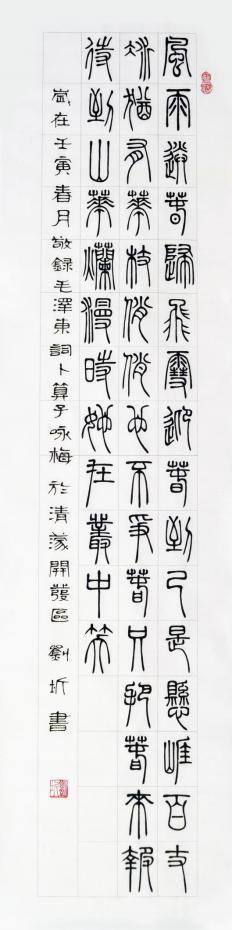 風雨送春歸飛雪迎春到已是懸崖百丈
冰猶有華枝俏俏也不爭春只把春來報
待到山華爛漫時她在叢中笑
歲在壬寅春月敬錄毛澤東詞卜算子咏梅於清濛開發區 劉圻書